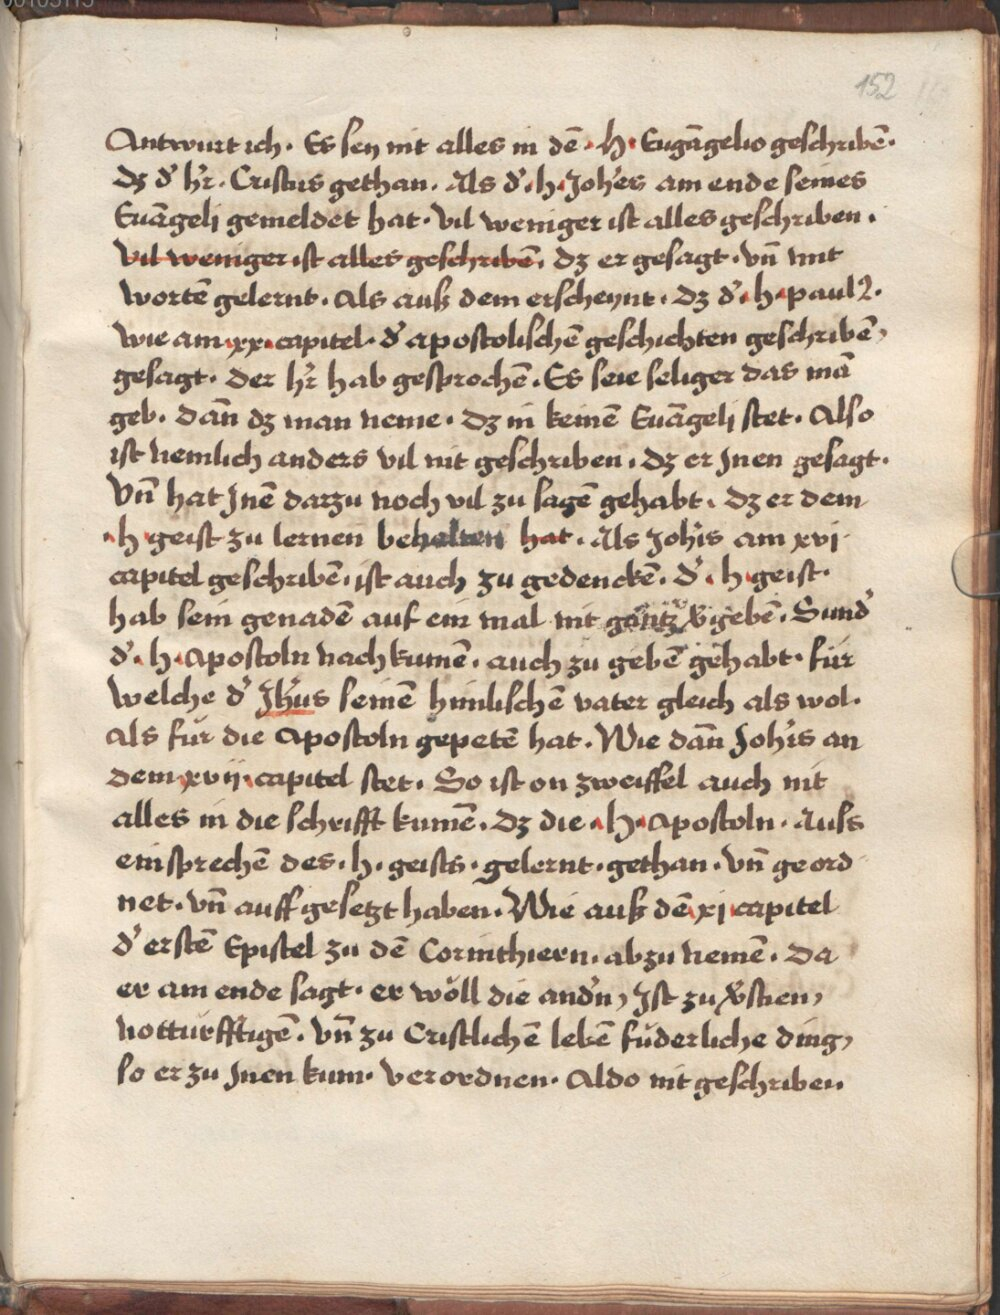 152
Antwurt ich · Es sey nit alles in dē · h · Eugāgelio geschribē ·
dz d' h'r · Cristus gethan · Als d' · h · Joh'es am ende seines
Euāgelj gemeldet hat · vil weniger ist alles geschriben ·
vil weniger ist alles geschribē · dz er gesagt · vn̄ mit
wortē gelernt · Als auß dem erscheynt · dz d' · h · paulꝰ ·
wie am · xx · capitel · d' apostolischē geschichten geschribē,
gesagt · der h'r hab gesprochē · Es seie seliger das mā
geb · dan̄ dz man neme · dz in keinē Euāgelj stet · Also
ist nemlich anders vil nit geschriben · dz er Jnen gesagt ·
Vn̄ hat Jnē darzu noch vil zu sagē gehabt · dz er dem
· h · geist zu lernen behalten hat · Als Joh'is am xvj ·
capitel geschribē · ist auch zu gedenckē · d' · h · geist ·
hab sein genadē auf ein mal nit gantz v'gebē · Sund'
d' · h · Apostoln nachkumē · auch zu gebē gehabt · für
welche d' Jh'us seinē himlischē vater gleich als wol ·
Als für die Apostoln gepetē hat · Wie dan̄ Joh'is an
dem · xvij · capitel stet · So ist on zweiffel auch nit
alles in die schrifft kumē · dz die · h · Apostoln · Auss
einsprechē des · h · geists · gelernt · gethan · vn̄ geord
net · vn̄ auff gesetzt haben · Wie auß dē · xj · capitel
d' erstē Epistel zu dē Corinthiern · abzunemē · Da
er am ende sagt · er wöll die and'n, Jst zu v'stien,
notturfftigē · vn̄ zu Cristlichē lebē fuderliche ding,
so er zu Jnen kum · verordnen · Aldo nit geschriben ·